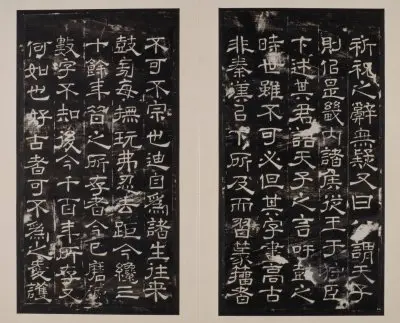 祈祝之辭無疑又曰謂天子
則伯是畿内諸侯從王于狩臣
下述其君語天子之言吁鼓之
時世雖不可必但其字畫高古
非秦漢以下所及而習篆籀者
不可不宗也迪自為諸生往來
鼓旁每撫玩弗忍去距今纔三
十餘年昔之所存者今已磨
數字不知後今千百年所存又
何如也好古者可不為之愛護